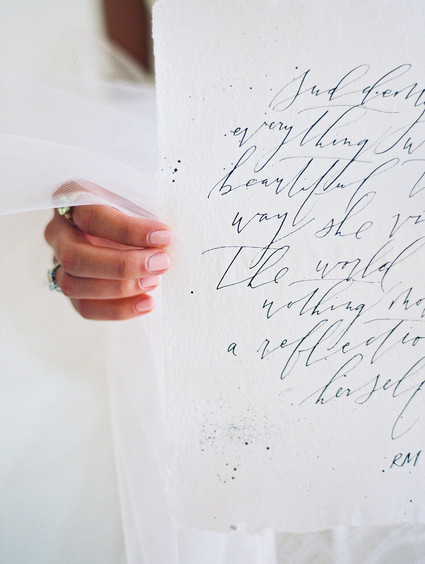 Suddenly
everything w
beautiful t
way she vi
The world
nothing mo
a reflectio
herself
RM